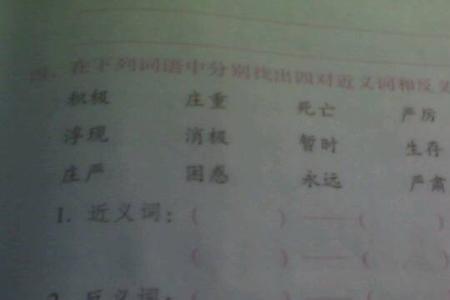 四、在下列词语中分别找出四对近义词和反义
积极 庄重 死亡 严厉
浮现 消极 暂时 生存
庄严 困惑 永远 严肃
1. 近义词：（ ）——（ ）
（ ）——（ ）
2. 反义词：（